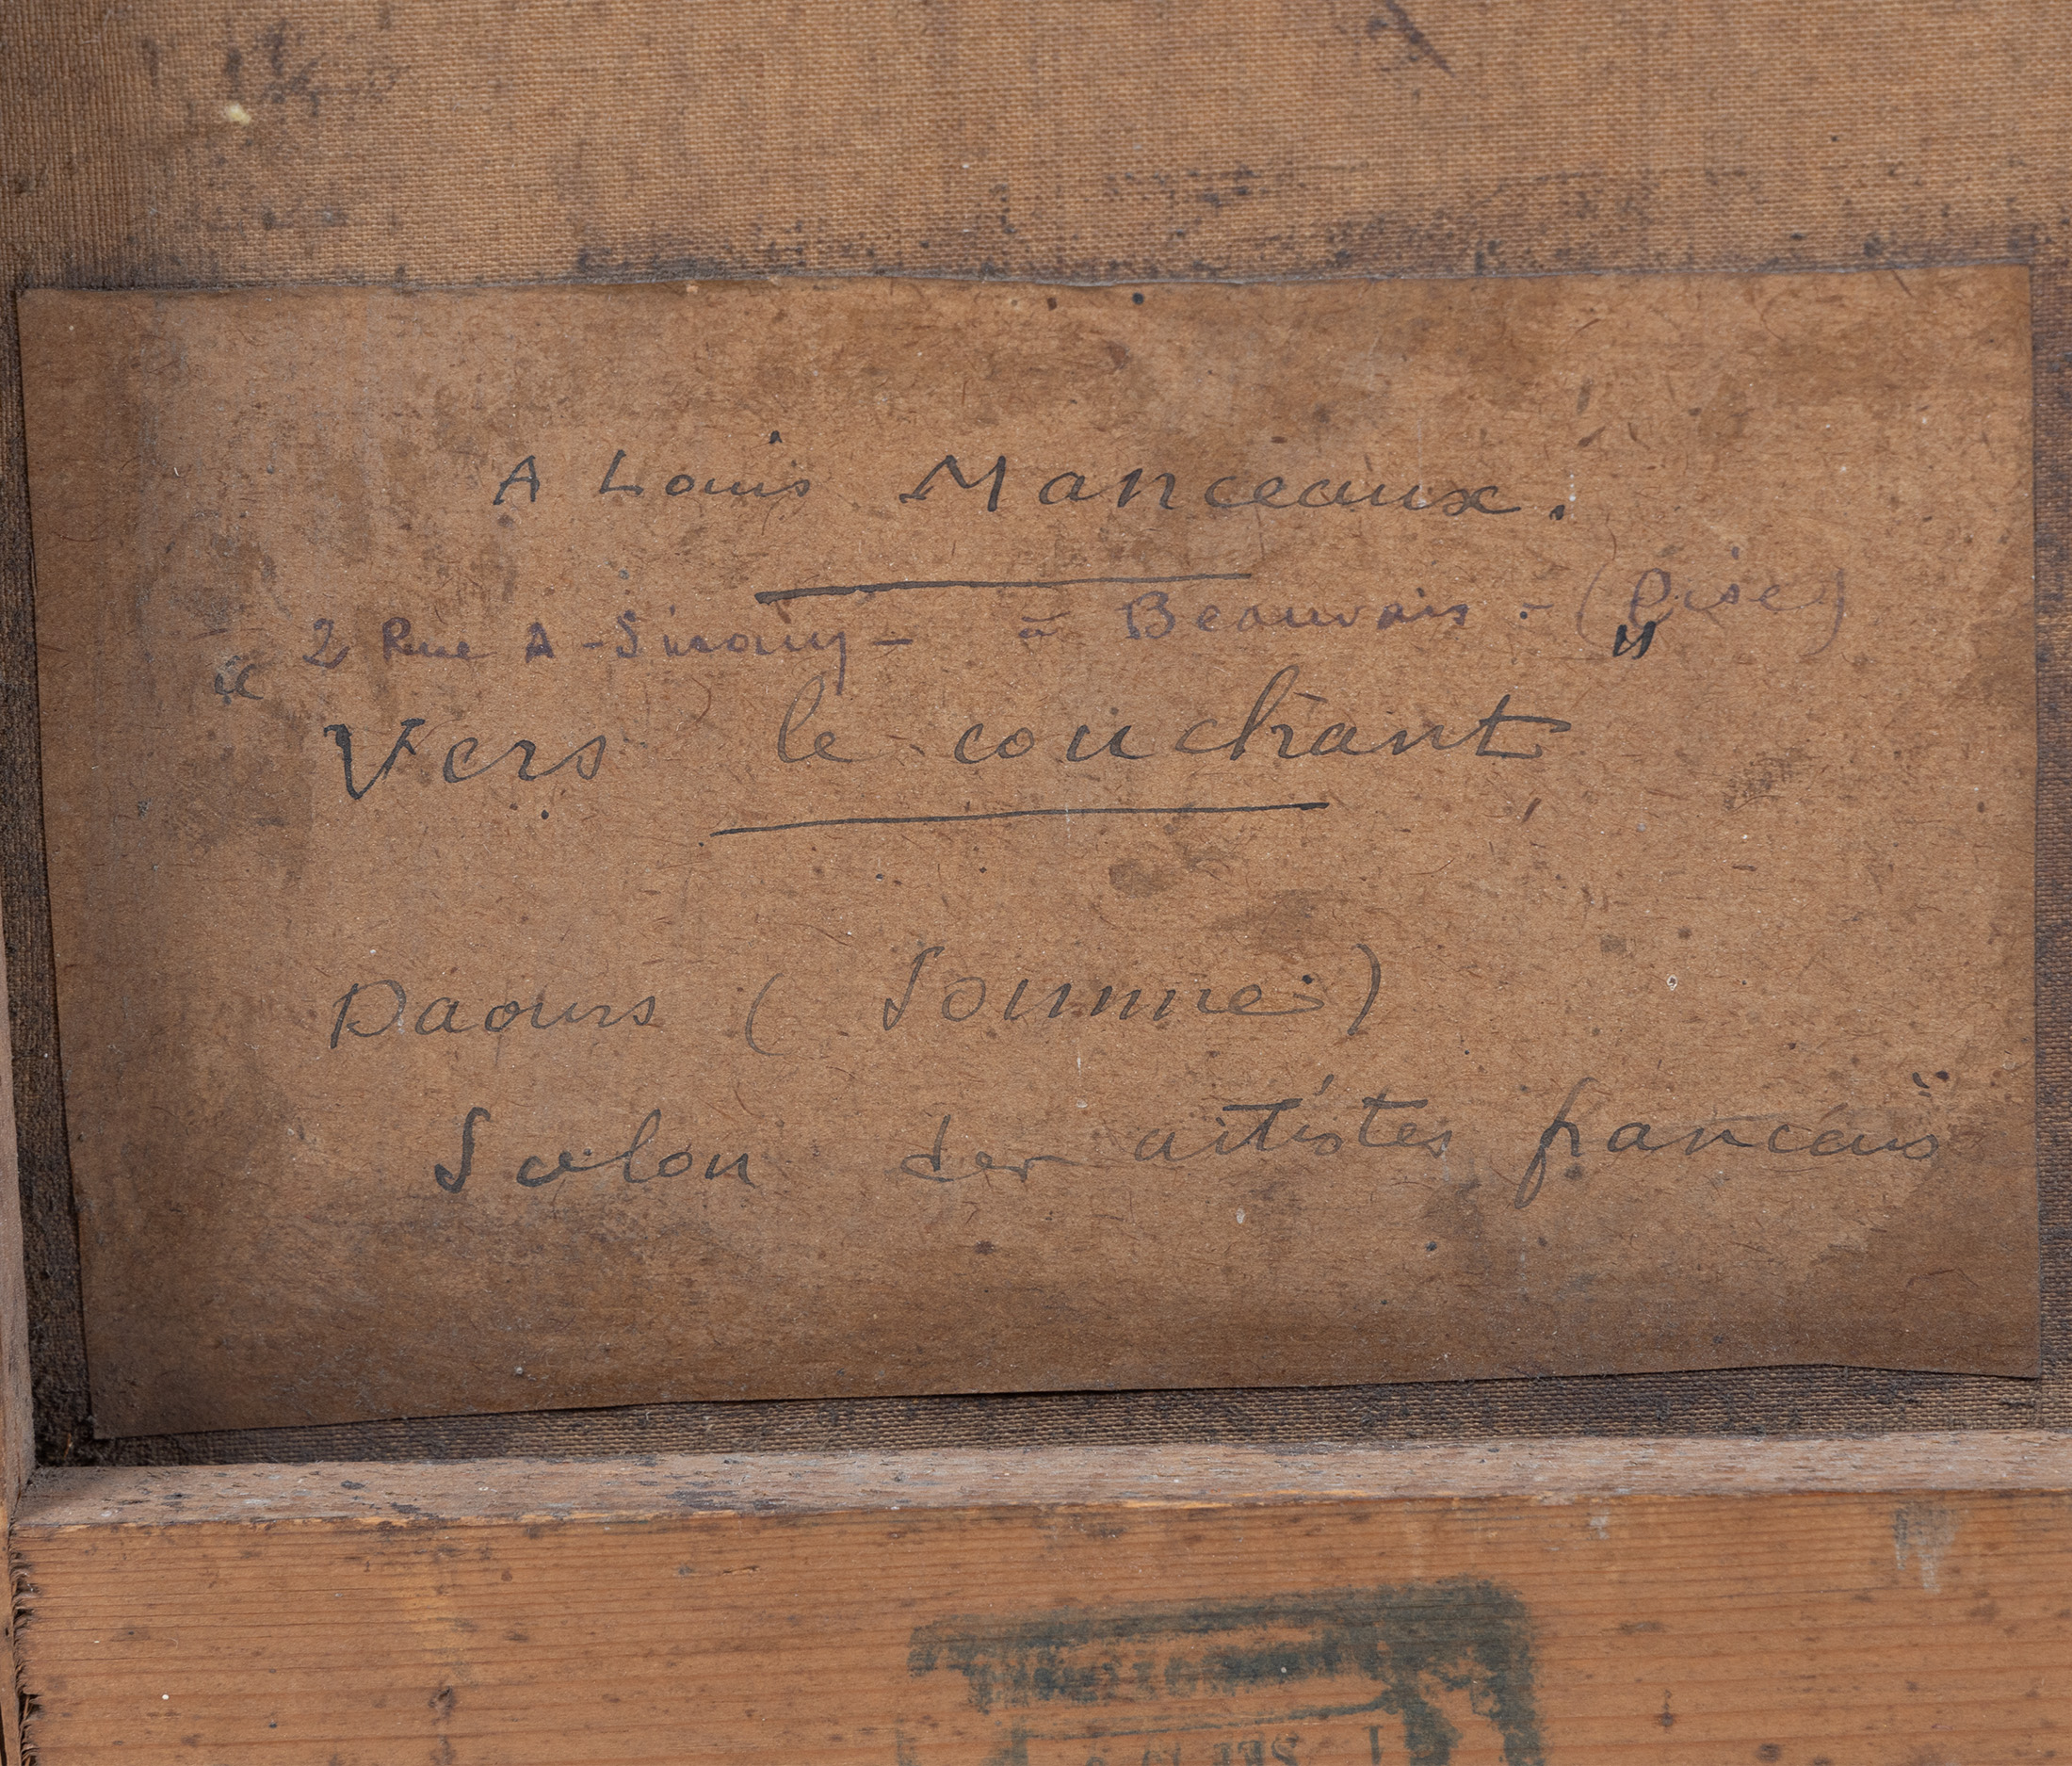 A Louis Manceaux.
2 Rue A - - à Beauvais - (Oise)
" Vers le couchant "
Daours ( Somme )
Salon des artistes francais